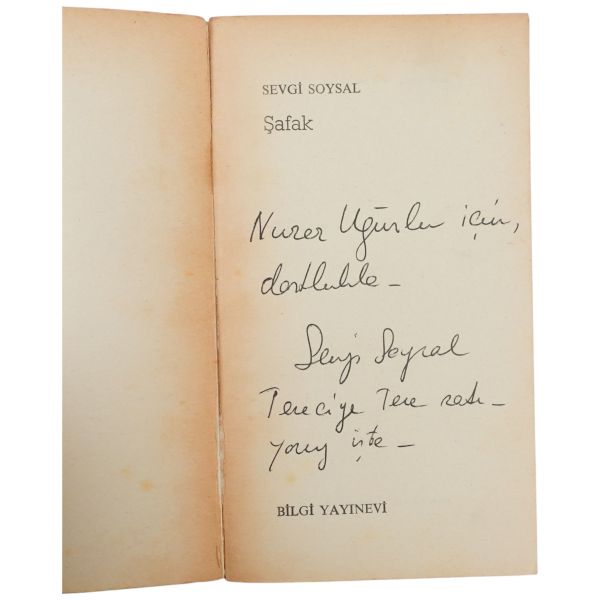 SEVGİ SOYSAL
Şafak
Nurer Uğurlu için,
dostlukla –
Sevgi Soysal
Tereciye Tere satı–
yoruz işte –
BİLGİ YAYINEVİ